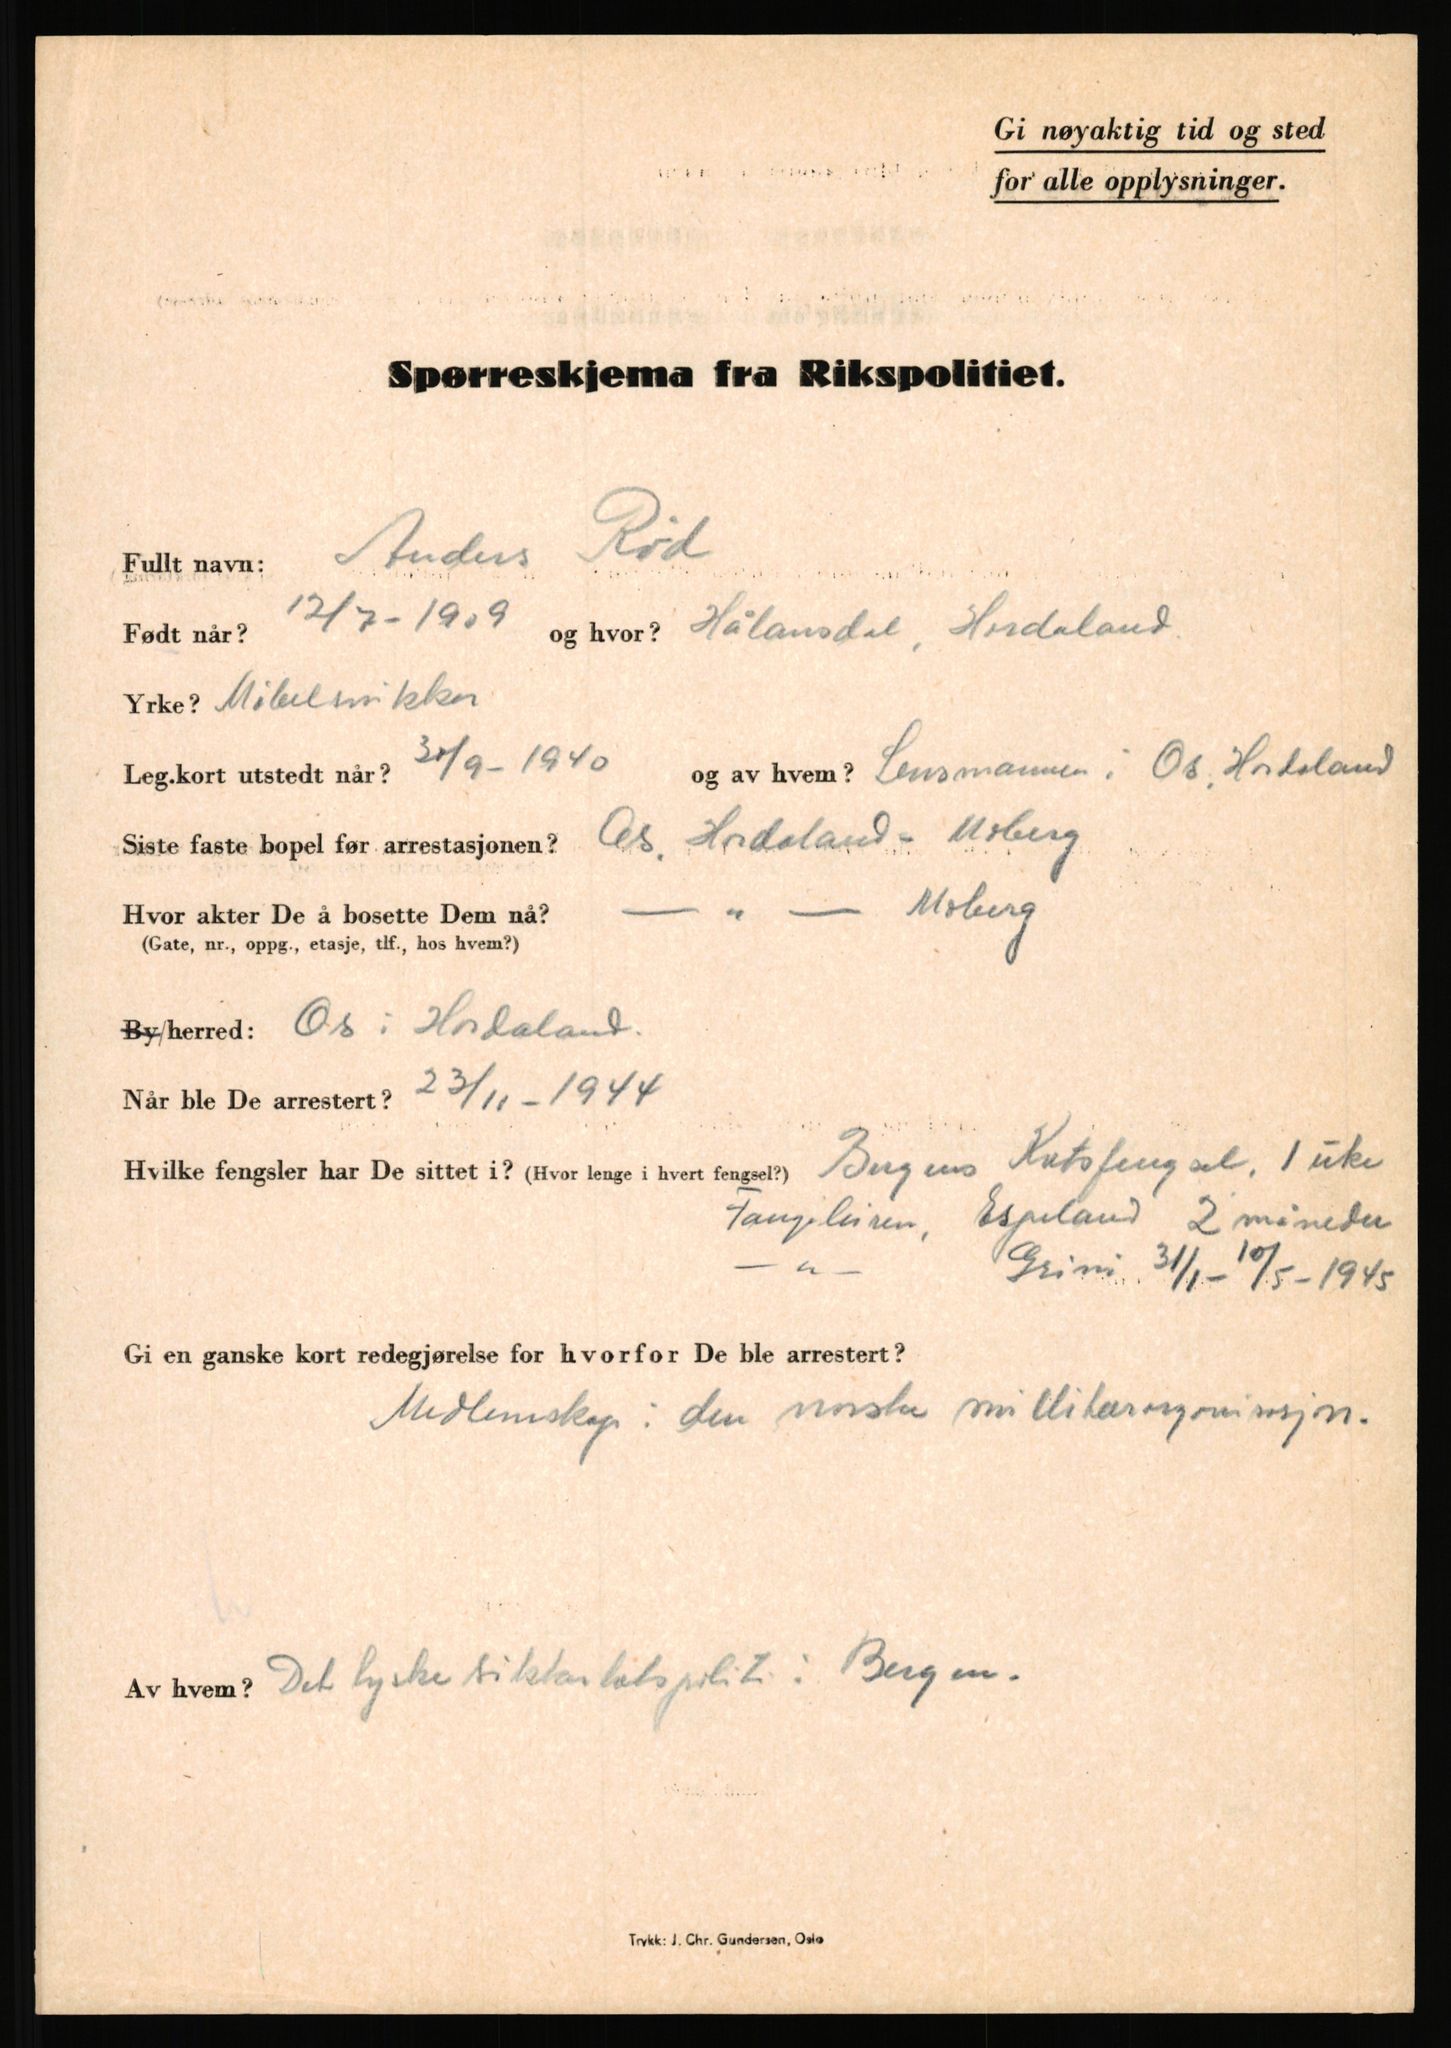 Gi nøyaktig tid og sted
for alle opplysninger.
Spørreskjema fra Rikspolitiet.
Fullt navn: Anders Rød
Født når? 12/7-1909 og hvor? Hålansdal, Hordaland.
Yrke? Møbelsnikker
Leg.kort utstedt når? 30/9-1940 og av hvem? Lensmannen i Os, Hordaland
Siste faste bopel før arrestasjonen? Os. Hordaland - Moberg
Hvor akter De å bosette Dem nå? — " — Moberg
(Gate, nr., oppg., etasje, tlf., hos hvem?)
By/herred: Os i Hordaland.
Når ble De arrestert? 23/11-1944
Hvilke fengsler har De sittet i? (Hvor lenge i hvert fengsel?) Bergens Kretsfengsel, 1 uke
Fangeleiren, Espeland 2 måneder
— " — Grini 31/1-10/5-1945
Gi en ganske kort redegjørelse for hvorfor De ble arrestert?
Medlemskap i den norske millitærorganisasjon.
Av hvem? Det tyske i Bergen.
Trykk: J. Chr. Gundersen, Oslo